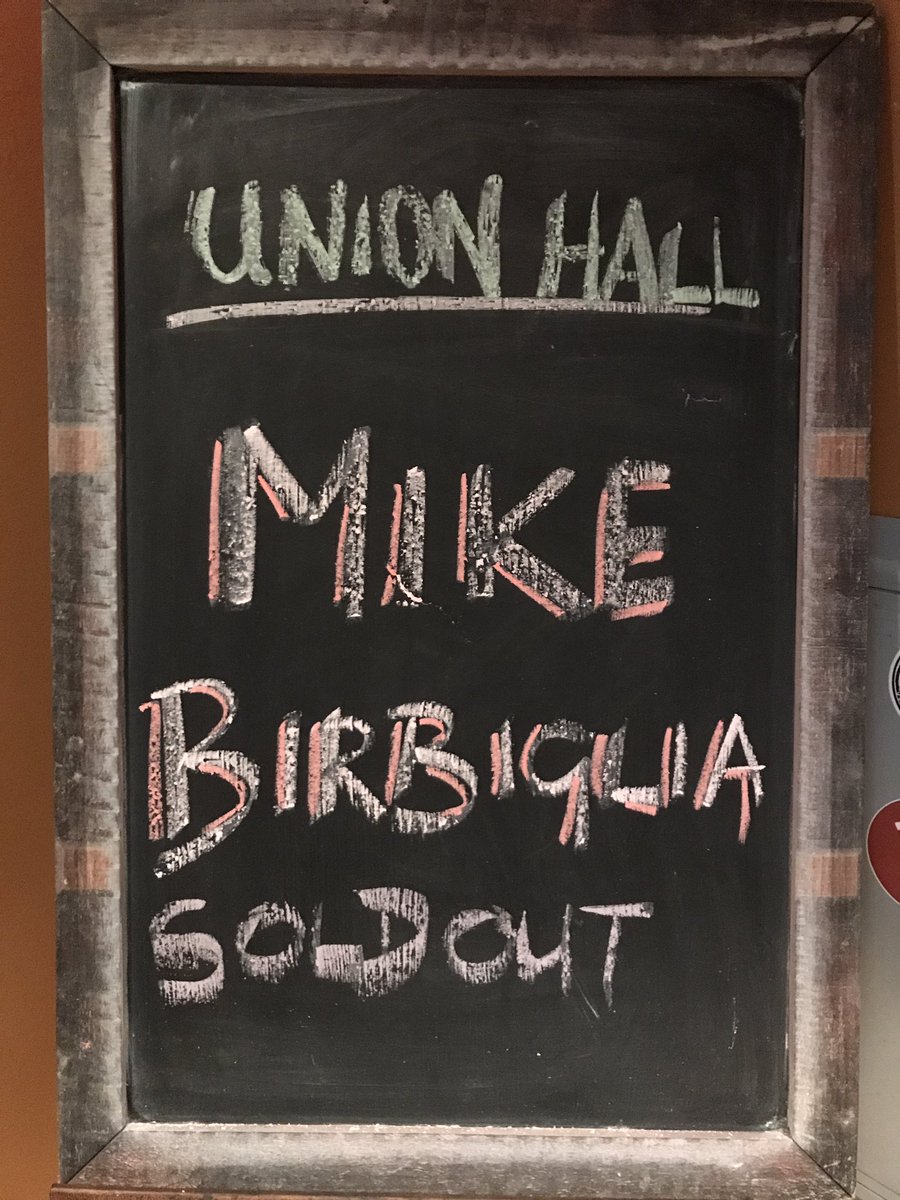 UNION HALL
MIKE
BIRBIGLIA
SOLD OUT